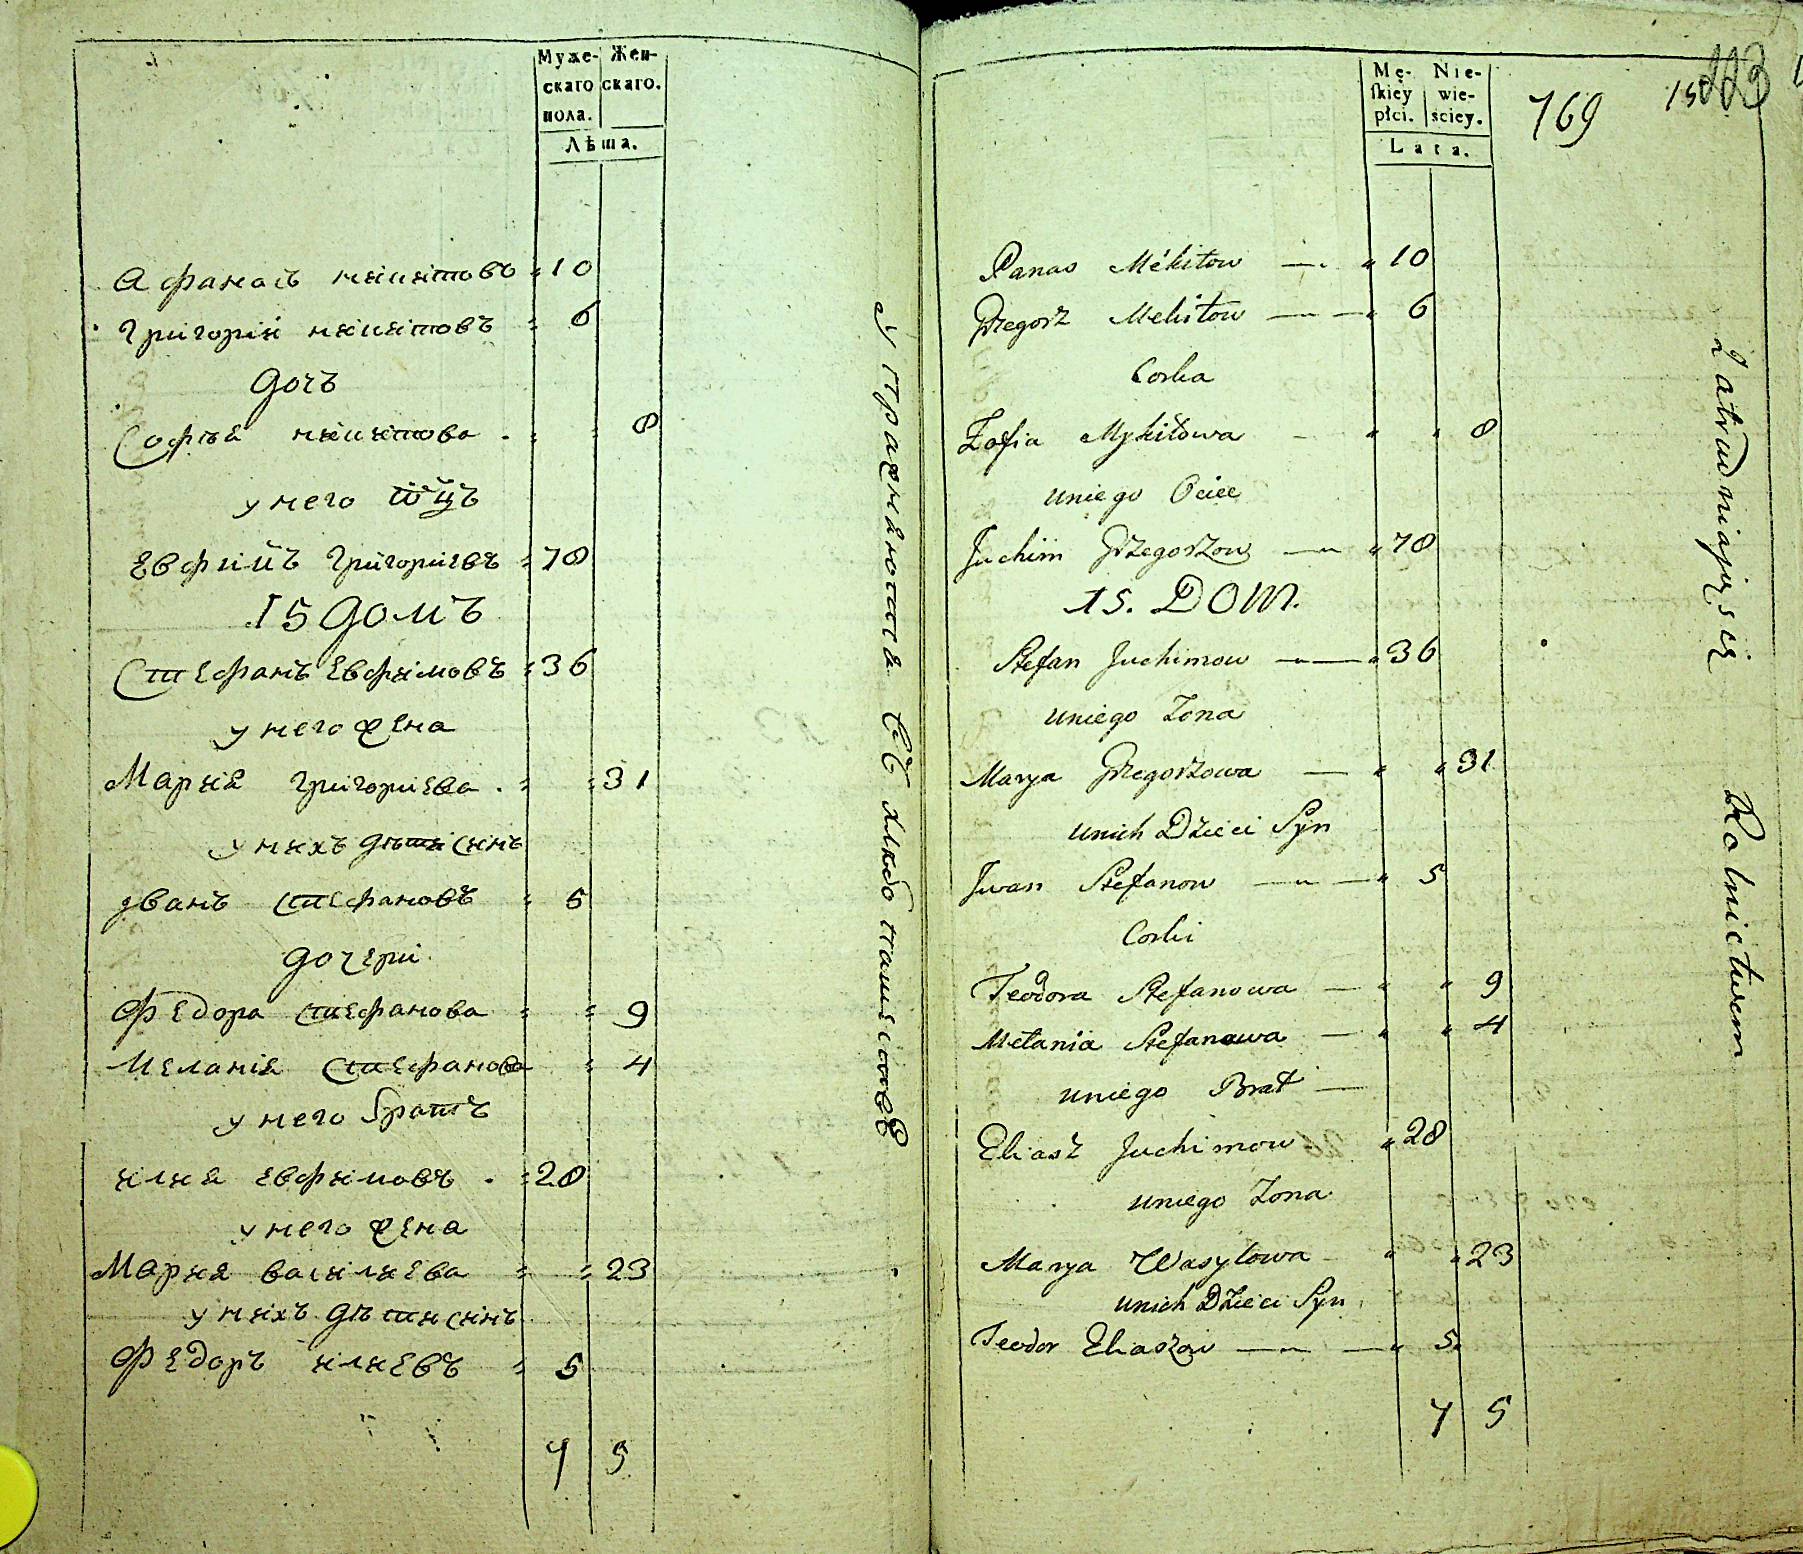 Муже- Жен-
скаго скаго.
пола.
Лѣта.
Афанасъ никитовъ 10
Григорий никитовъ 6
дочъ
Софья никитова 8
у него ѿц̃ъ
Евфимъ григориевъ 78
15 домъ
Стефанъ Евфимовъ 36
у него жена
Мария григориева 31
у нихъ дѣти синъ
иванъ стефановъ 5
дочери
Федора стефанова 9
Мелания Стефанова 4
у него братъ
илия Евфимовъ 28
у него жена
Мария василиева 23
у нихъ дѣти синъ
Федоръ илиевъ 5
7 5
Упражняются въ хлебопашестве
Mę- Nie-
skiey wie-
płci. sciey.
Lata.
769
15
223
Panas Mékitow 10
Grzegorz Mekitow 6
Corka
Zofia Mykitowa 8
uniego Ociec
Juchim Grzegorzow 78
15. DOM.
Stefan Juchimow 36
uniego Zona
Marya Grzegorzowa 31
unich Dzieci Syn
Jwan Stefanow 5
Corki
Teodora Stefanowa 9
Metania Stefanowa 4
uniego Brat
Eliasz Juchimow 28
uniego Zona
Marya Wasylowa 23
unich Dzieci Syn
Teodor Eliaszow 5
7 5
Zatrudniaią się Rolnictwem